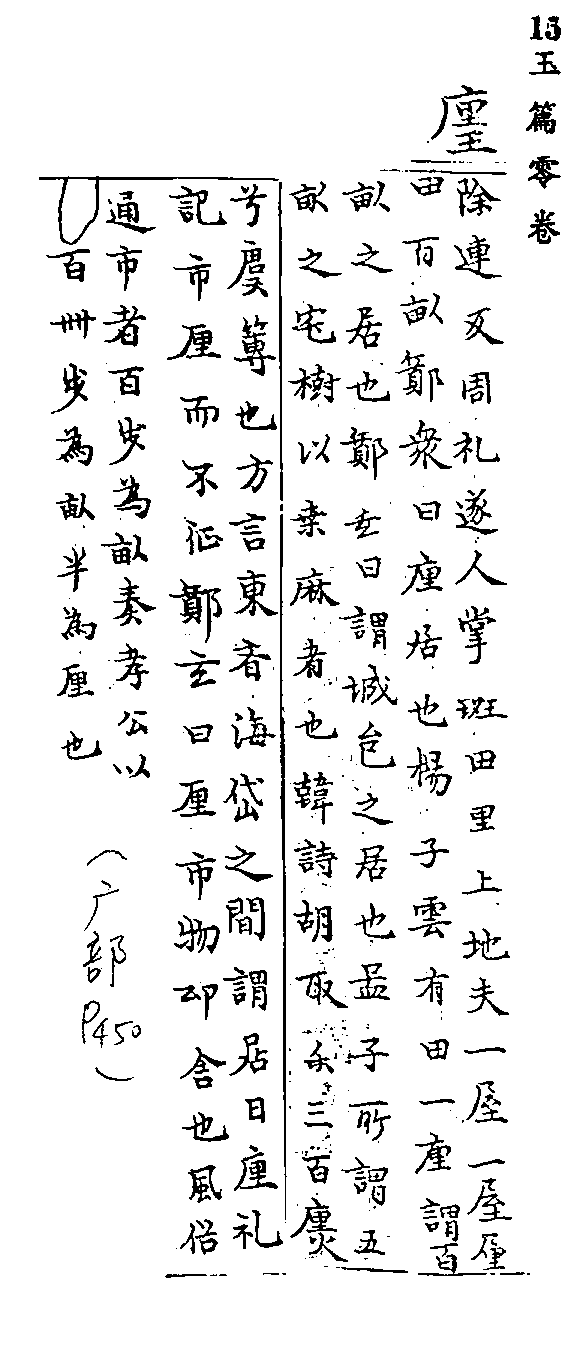 15 玉篇零卷
廛
除連反周礼遂人掌班田里上地夫一廛一廛廛
田百畝鄭衆曰廛居也楊子雲有田一廛謂百
畝之居也鄭玄曰謂城邑之居也孟子所謂五
畝之宅樹以桒麻者也韓詩胡取禾三百廛
兮廛篿也方言東齊海岱之間謂居曰廛礼
記市厘而不征鄭玄曰厘市物邸舍也風俗
通市者百步為畝秦孝公以
百卌步為畝半為厘也
（广部 P450）